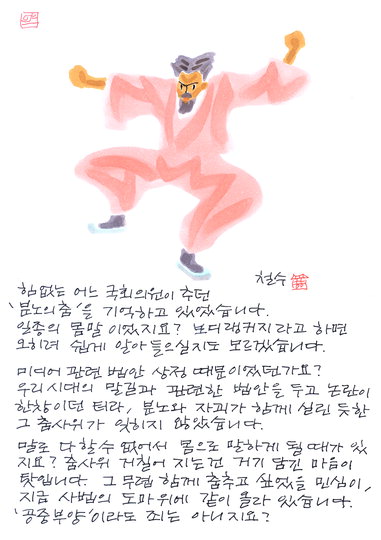 철수
힘없는 어느 국회의원이 추던
'분노의 춤'을 기억하고 있었습니다.
일종의 몸말 이었지요? 보디랭커지라고 하면
오히려 쉽게 알아들으실지도 모르겠습니다.
미디어 관련 법안 상정 때문이었던가요?
우리시대의 말길과 관련한 법안을 두고 논란이
한창이던 터라, 분노와 자괴가 함께 실린 듯한
그 춤사위가 잊히지 않았습니다.
말로 다 할 수 없어서 몸으로 말하게 될 때가 있
지요? 춤사위 거칠어 지는건 거기 담긴 마음이
탓입니다. 그 무렵 함께 춤추고 싶었을 민심이,
지금 사법의 도마위에 같이 올라 있습니다.
'공중부양'이라도 죄는 아니지요?